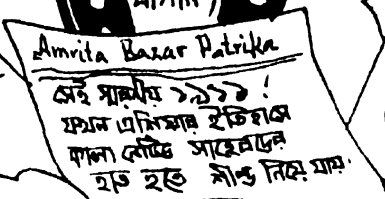 Amrita Bazar Patrika
সেই স্মরনীয় ১৯১১!
যখন এশিয়ার ইতিহাসে
কালা নেটিভ সাহেবদের
হাত হতে শীল্ড নিয়ে যায়.